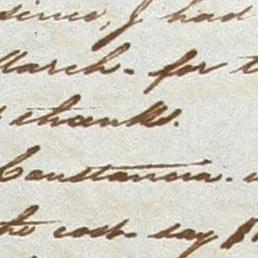 since, I had
March - for
thanks.
Constancia -
the cash - say